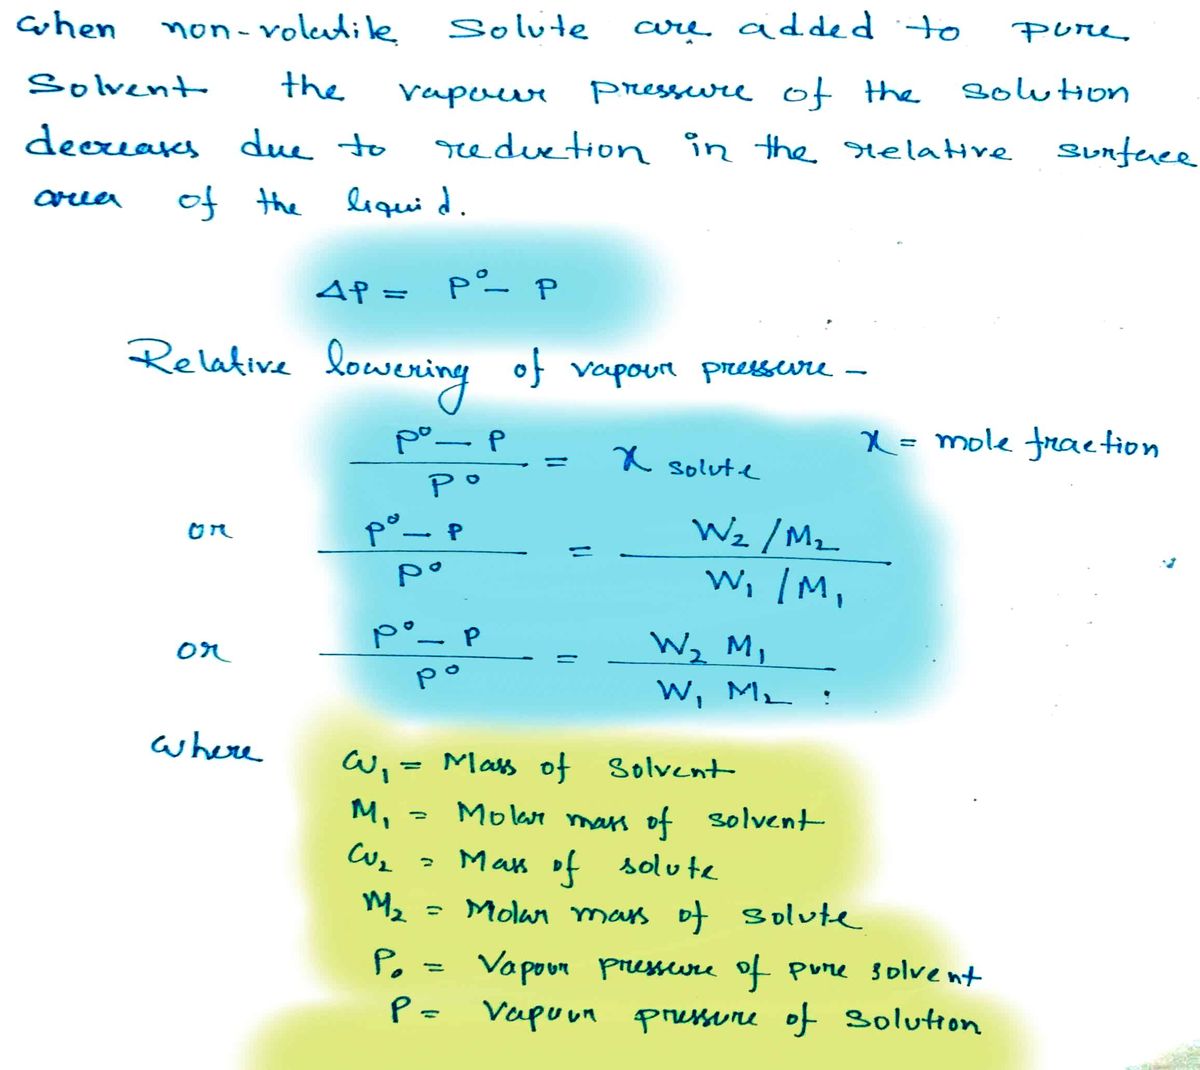 when non-volatile solute are added to pure
solvent the vapour pressure of the solution
decreases due to reduction in the relative surface
area of the liquid.
ΔP = P° – P
Relative lowering of vapour pressure –
P° – P / P° = x solute
x = mole fraction
or P° – P / P° = W₂/M₂ / W₁/M₁
or P° – P / P° = W₂ M₁ / W₁ M₂
where W₁ = Mass of solvent
M₁ = Molar mass of solvent
W₂ = Mass of solute
M₂ = Molar mass of solute
P₀ = Vapour pressure of pure solvent
P = Vapour pressure of solution